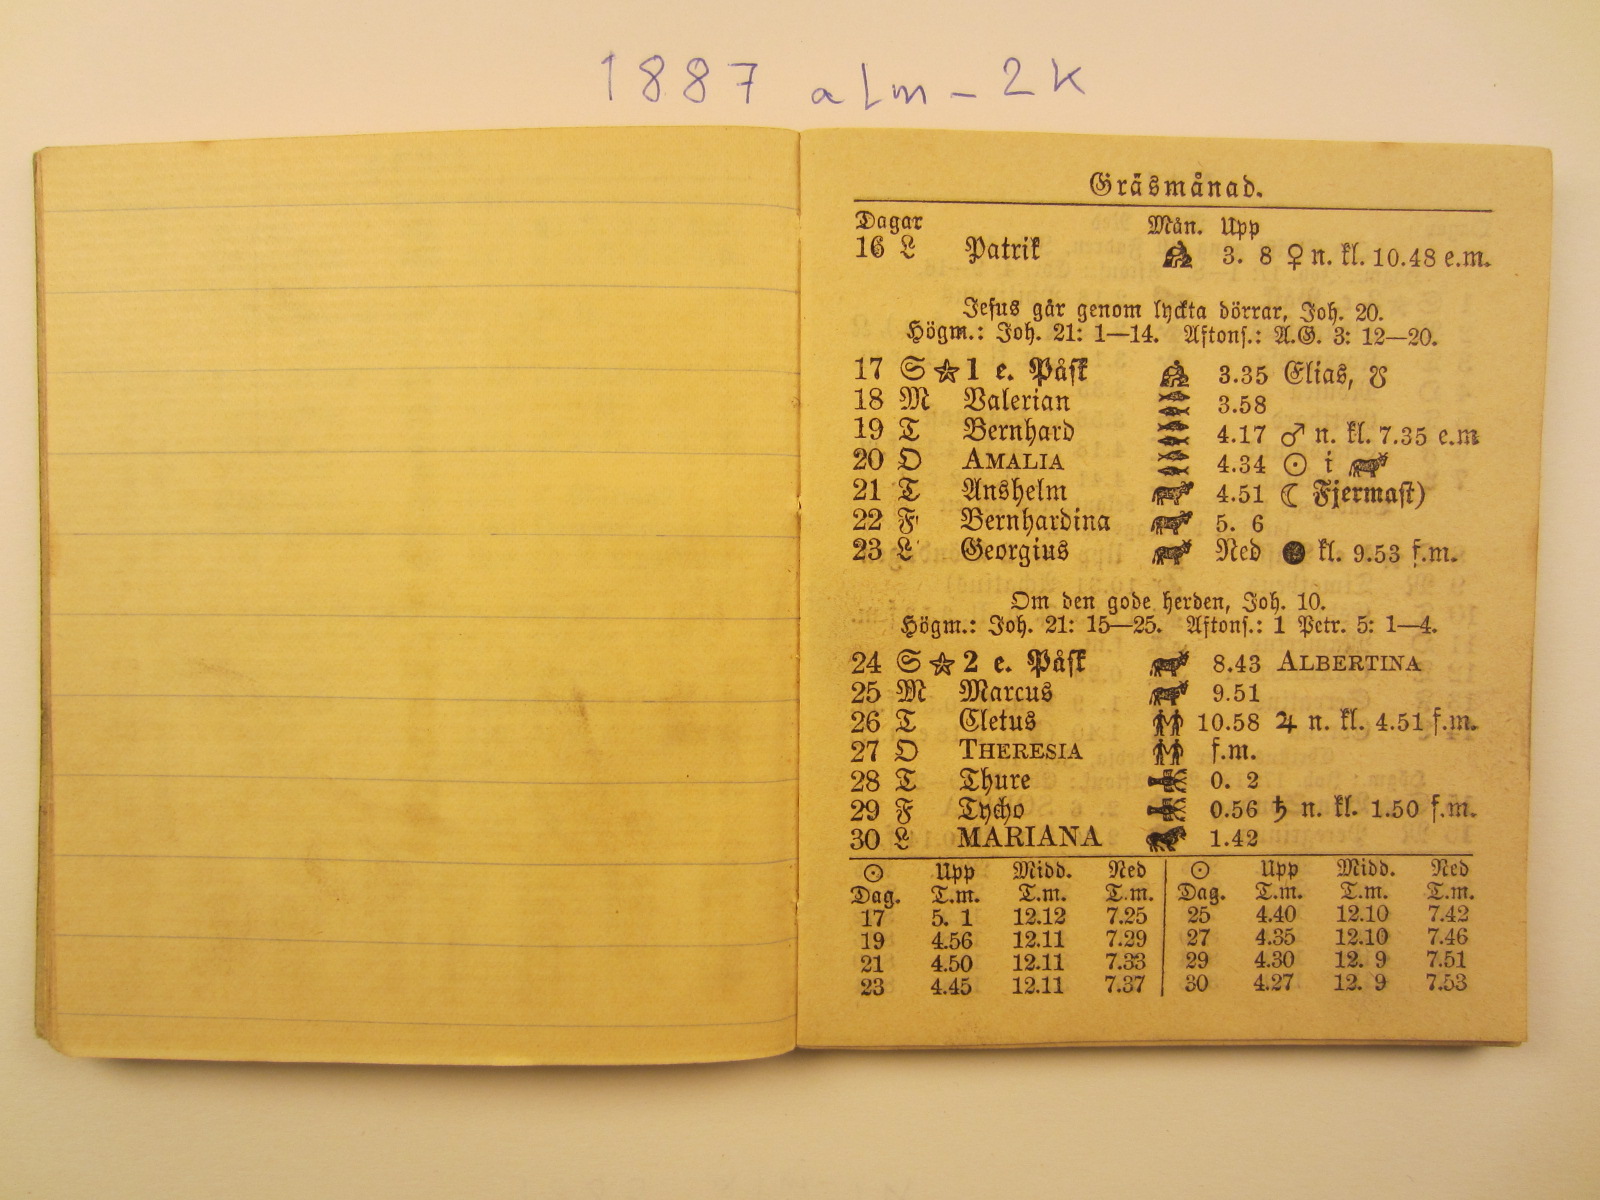 1887 alm-2k
Gräsmånad.
Dagar Mån. Upp
16 L Patrik 3. 8 ♀ n. kl. 10.48 e.m.
Jesus går genom lyckta dörrar, Joh. 20.
Högm.: Joh. 21: 1—14. Aftons.: A.G. 3: 12—20.
17 S ☆ 1 e. Påsk 3.35 Elias, ☋
18 M Valerian 3.58
19 T Bernhard 4.17 ♂ n. kl. 7.35 e.m
20 O AMALIA 4.34 ☉ i
21 T Anshelm 4.51 ☾ Fjermast)
22 F Bernhardina 5. 6
23 L Georgius Ned ● kl. 9.53 f.m.
Om den gode herden, Joh. 10.
Högm.: Joh. 21: 15—25. Aftons.: 1 Petr. 5: 1—4.
24 S ☆ 2 e. Påsk 8.43 ALBERTINA
25 M Marcus 9.51
26 T Cletus 10.58 ♃ n. kl. 4.51 f.m.
27 O THERESIA f.m.
28 T Thure 0. 2
29 F Tycho 0.56 ♄ n. kl. 1.50 f.m.
30 L MARIANA 1.42
☉ Upp Midd. Ned ☉ Upp Midd. Ned
Dag. T.m. T.m. T.m. Dag. T.m. T.m. T.m.
17 5. 1 12.12 7.25 25 4.40 12.10 7.42
19 4.56 12.11 7.29 27 4.35 12.10 7.46
21 4.50 12.11 7.33 29 4.30 12. 9 7.51
23 4.45 12.11 7.37 30 4.27 12. 9 7.53